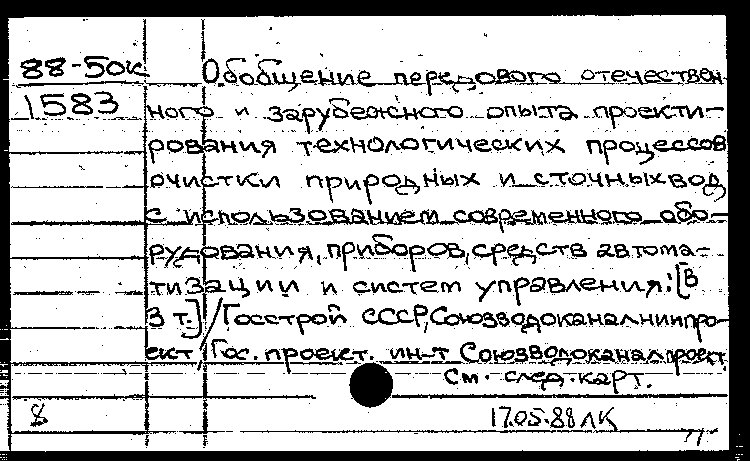 88-50к Обобщение передового отечествен-
1583 ного и зарубежного опыта проекти-
рования технологических процессов
очистки природных и сточных вод
с использованием современного обо-
рудования, приборов, средств автома-
тизации и систем управления: [В
3 т.] / Госстрой СССР, Союзводоканалниипро-
ект, Гос. проект. ин-т Союзводоканалпроект.
См. след. карт.
8 17.05.88 ЛК